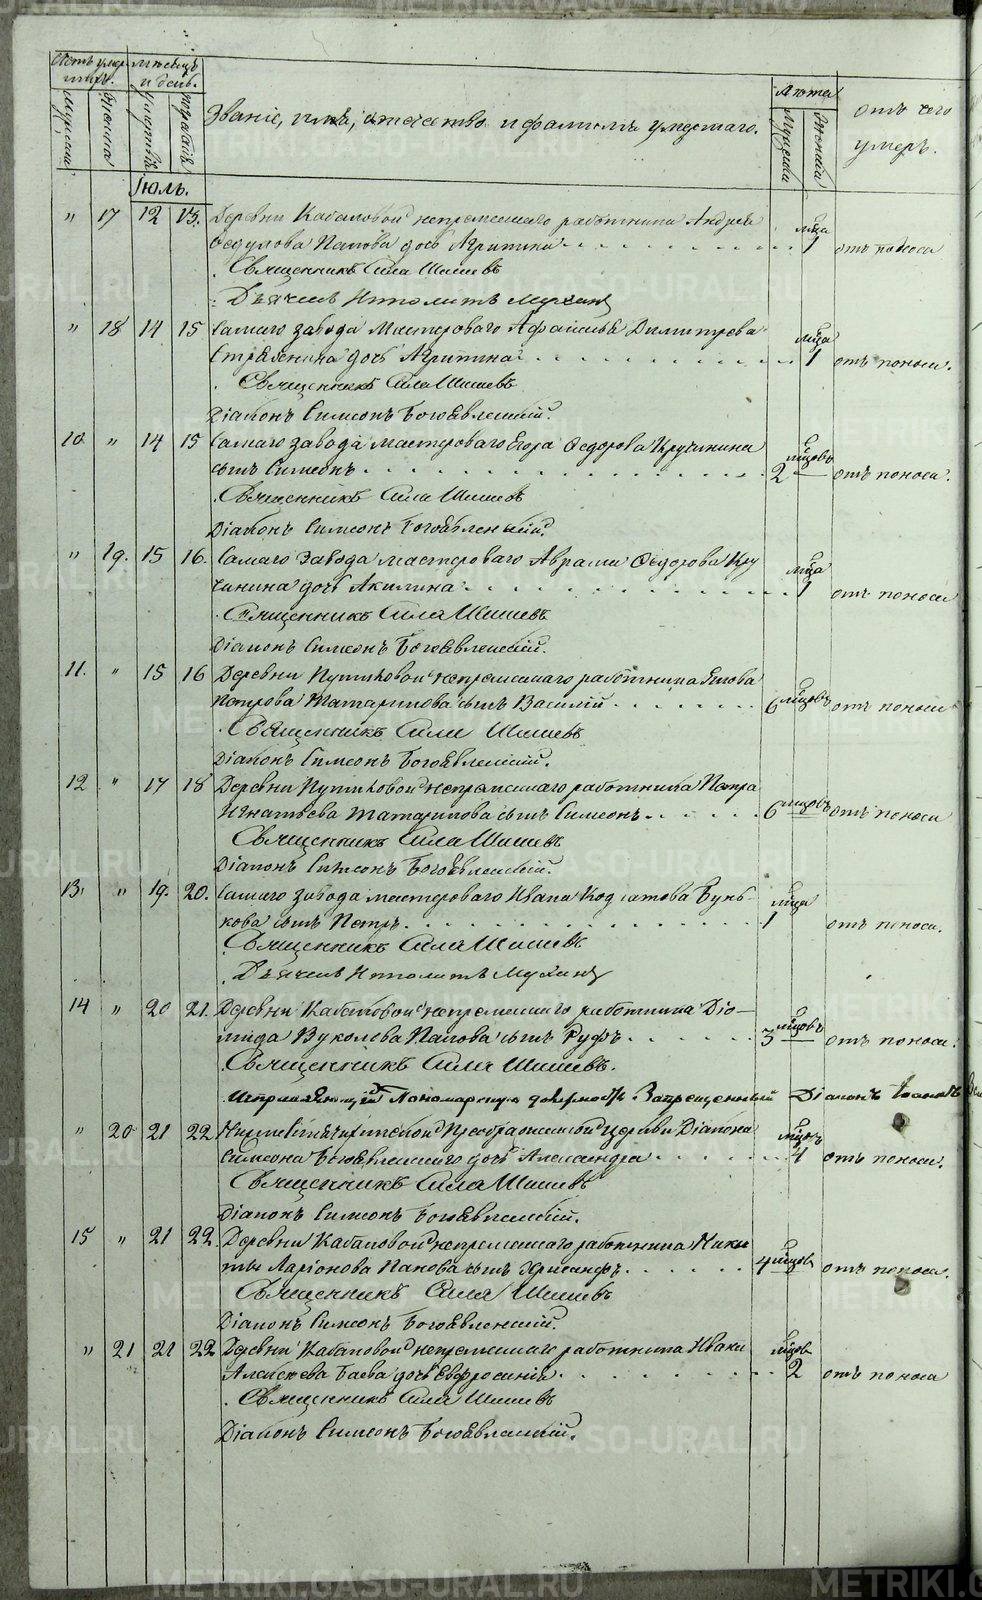 Счетъ умер- Мѣсяцъ Лѣта
шихъ. и день. отъ чего
Мужеска Женска смерти погребенія Званіе, имя, отчество и фамилія умершаго. Мужеска Женска умеръ.
Іюль.
" 17 12 13. Деревни Кабаковой непремѣннаго работника Андрея м-ца
Ѳедулова Папова дочь Агрипина 1 отъ поноса
Священникъ Сила Шишевъ
Дьячекъ Ипполитъ Мухинъ
" 18 14 15 Самаго завода Мастероваго Афанасья Димитрева м-ца
дочь Агрипина 1 отъ поноса.
Священникъ Сила Шишевъ
Діаконъ Симеонъ Богоявленскій.
10 " 14 15 Самаго завода мастероваго Егора Ѳедорова Кручинина м-цовъ
сынъ Симеонъ 2 отъ поноса.
Священникъ Сила Шишевъ
Діаконъ Симеонъ Богоявленскій.
" 19. 15 16. Самаго завода мастероваго Аврама Ѳедорова Кру м-ца
чинина дочь Акилина 1 отъ поноса
Священникъ Сила Шишевъ
Діаконъ Симеонъ Богоявленскій.
11. " 15 16 Деревни непремѣннаго работника Якова м-цовъ
Петрова Татаринова сынъ Василій 6 отъ поноса
Священникъ Сила Шишевъ
Діаконъ Симеонъ Богоявленскій.
12 " 17 18 Деревни непремѣннаго работника Петра м-цовъ
Игнатьева Татаринова сынъ Симеонъ 6 отъ поноса
Священникъ Сила Шишевъ
Діаконъ Симеонъ Богоявленскій.
13. " 19. 20. Самаго завода мастероваго Ивана Кодратова Бунь- м-ца
кова сынъ Петръ 1 отъ поноса.
Священникъ Сила Шишевъ
Дьячекъ Ипполитъ Мухинъ
14 " 20 21. Деревни Кабаковой непремѣннаго работника Діо- м-цовъ
мида Вуколова Папова сынъ Руфъ 3 отъ поноса.
Священникъ Сила Шишевъ.
Исправляющій Пономарскую должность Запрещенный Діаконъ Іоаннъ
" 20 21 22 Преображенской церкви Діакона м-цъ
Симеона Богоявленскаго дочь Александра 4 отъ поноса.
Священникъ Сила Шишевъ
Діаконъ Симеонъ Богоявленскій.
15 " 21 22 Деревни Кабаковой непремѣннаго работника Ники м-цов
ты Ларіонова Папова сынъ Хрисанфъ 4 отъ поноса.
Священникъ Сила Шишевъ
Діаконъ Симеонъ Богоявленскій.
" 21 21 22 Деревни Кабаковой непремѣннаго работника Ивана м-цов
Алексѣева Баева дочь Евфросинія 2 отъ поноса
Священникъ Сила Шишевъ
Діаконъ Симеонъ Богоявленскій.
METRIKI.GASO-URAL.RU